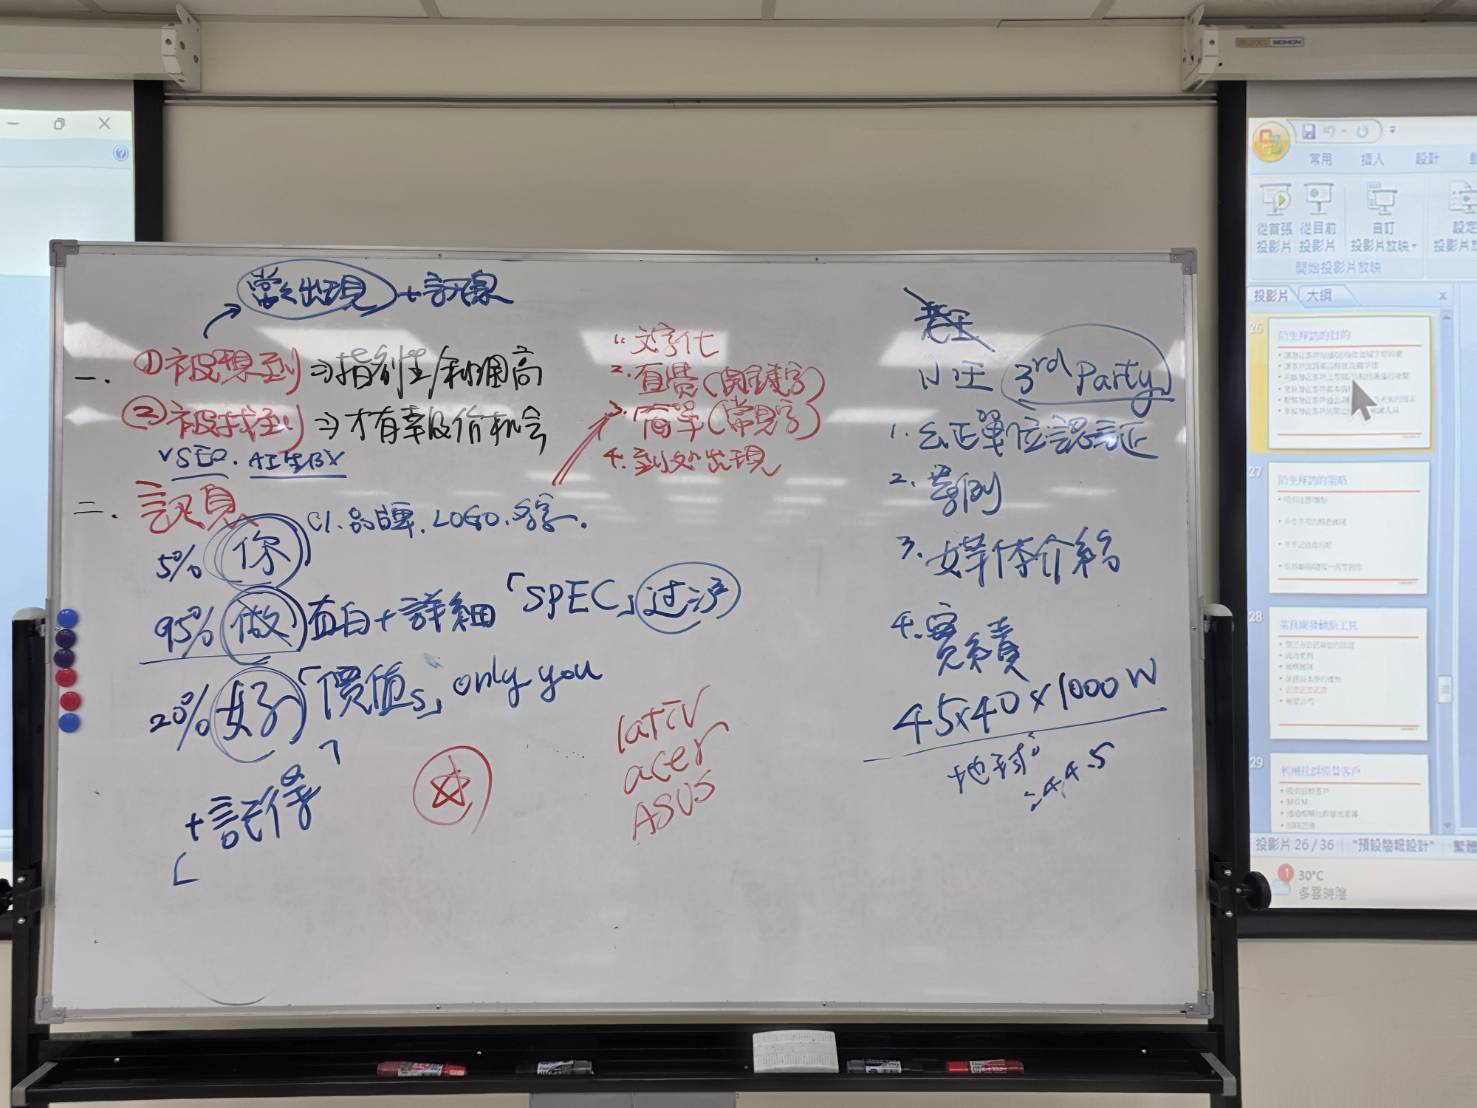 常常出現 + 記得
一. ①被想到 ⇒ 指名生/利潤高
②被找到 ⇒ 才有報價机会
∨SEO. AI生成
二. 認真
CI. 品牌. LOGO.
5% 你
95% 做 直白+詳細「SPEC」过汐
20% 好「價值s」only you
+「記得」
1. 文字化
2. 直覺(関鍵字)
3. 簡單(常見字)
4. 到处出現
lativ
acer
ASUS
老王
小王 3rd Party
1. 公正單位認証
2. 案例
3. 媒体介紹
4. 實績
45x40x1000W
地球
24,4.5
SEMON
常用 插入 設計
從首張投影片 從目前投影片 自訂投影片放映 設定投影片
開始投影片放映
投影片 大綱
26
陌生拜訪的目的
27
陌生拜訪的策略
28
業務開發輔助工具
29
利用社群經營客戶
MGM
投影片 26 / 36 "預設簡報設計" 繁體
1
30°C
多雲時陰